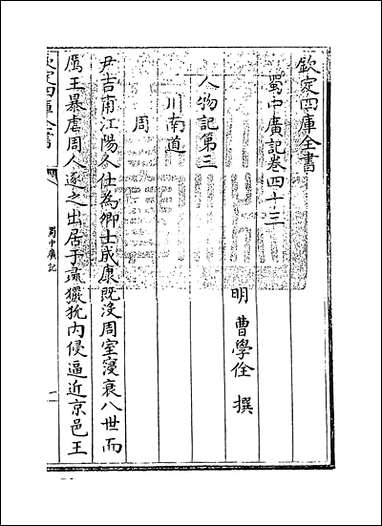 欽定四庫全書
蜀中廣記卷四十三
明 曹學佺 撰
人物記第三
川南道
周
尹吉甫江陽人仕為卿士成康既沒周室寖衰八世而
厲王暴虐周人逐之出居于彘玁狁內侵逼近京邑王
欽定四庫全書
蜀中廣記
一